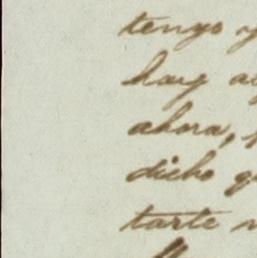 tengo y
hay a
ahora,
dicho q
tarte